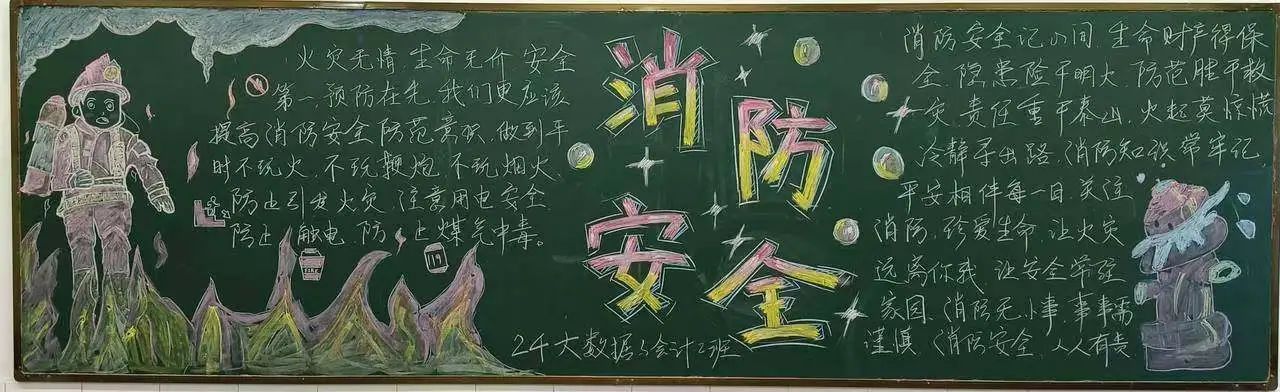 火灾无情,生命无价,安全
第一,预防在先,我们更应该
提高消防安全防范意识,做到平
时不玩火、不玩鞭炮、不玩烟火、
防止引发火灾,注意用电安全
防止触电,防止煤气中毒。
FIRE
119
消防
安全
24大数据与会计2班
消防安全记心间,生命财产得保
全,隐患险于明火,防范胜于救
灾,责任重于泰山,火起莫惊慌
冷静寻出路,消防知识常牢记,
平安相伴每一日,关注
消防,珍爱生命,让火灾
远离你我,让安全常驻
家园,消防无小事,事事需
谨慎,消防安全,人人有责